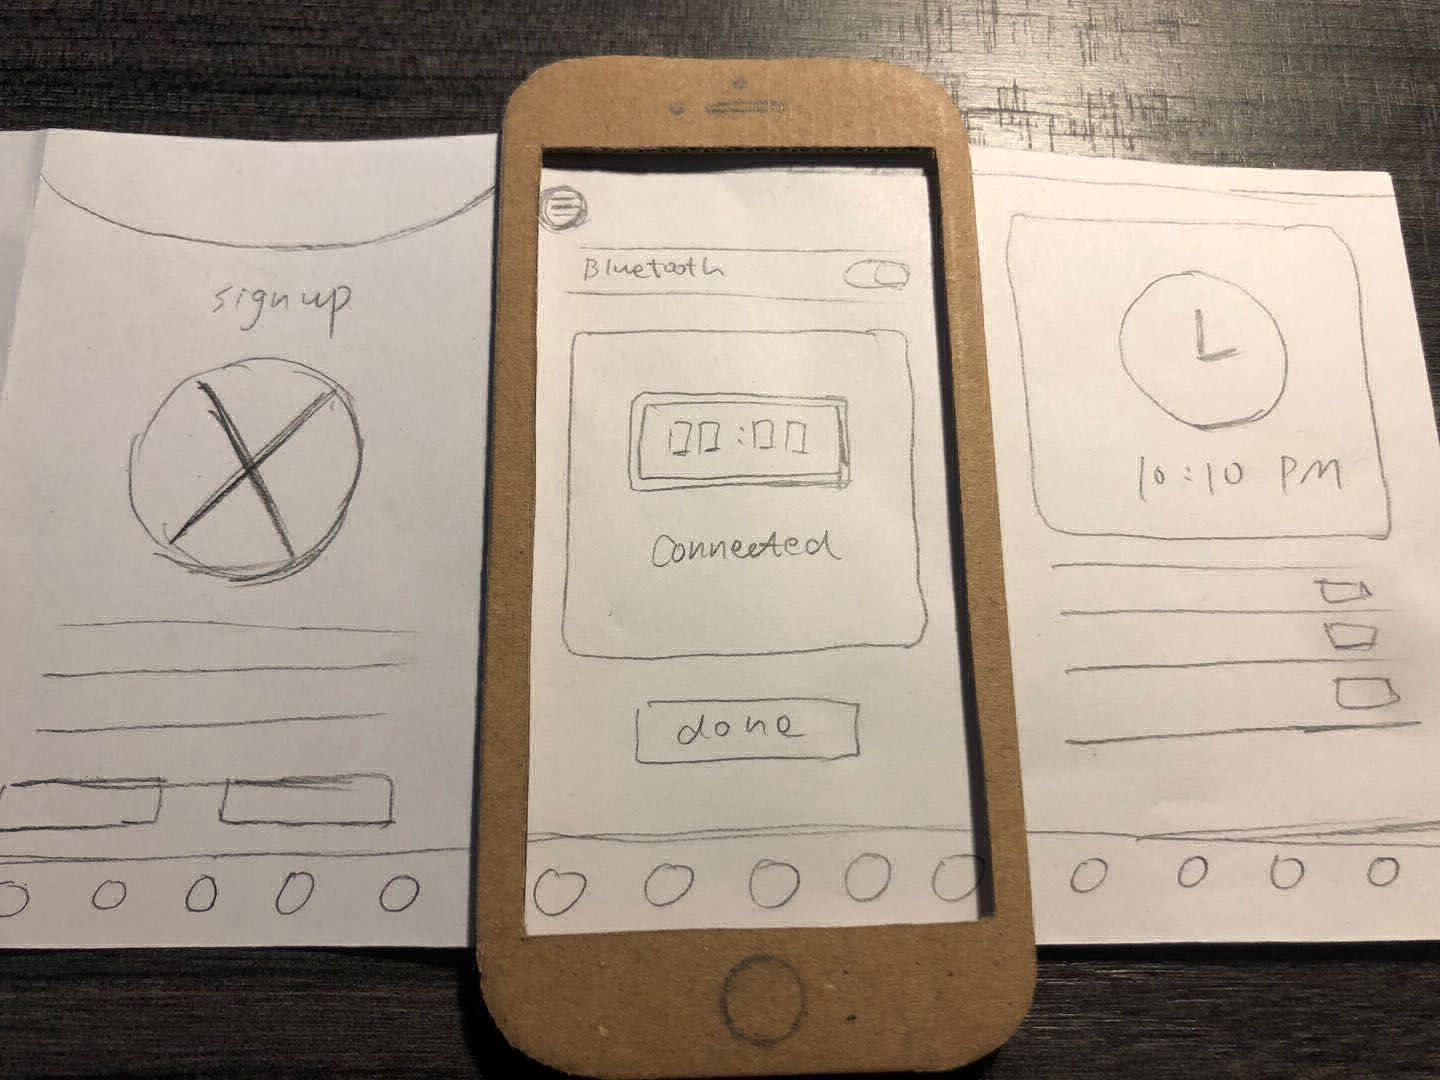 sign up
Bluetooth
00:00
Connected
done
10:10 PM